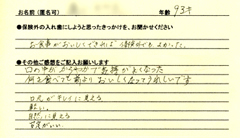 お名前（匿名可）　年齢 93才
●保険外の入れ歯にしようと思ったきっかけを、お聞かせください
お食事がおいしくできれば 保険外でもよかった。
●その他ご感想をご記入お願いします
口の中が かろやかで 気持がよくなった
何を食べても 前より おいしくなってうれしいです
口元がキレイに見える
軽い。
自然に見える